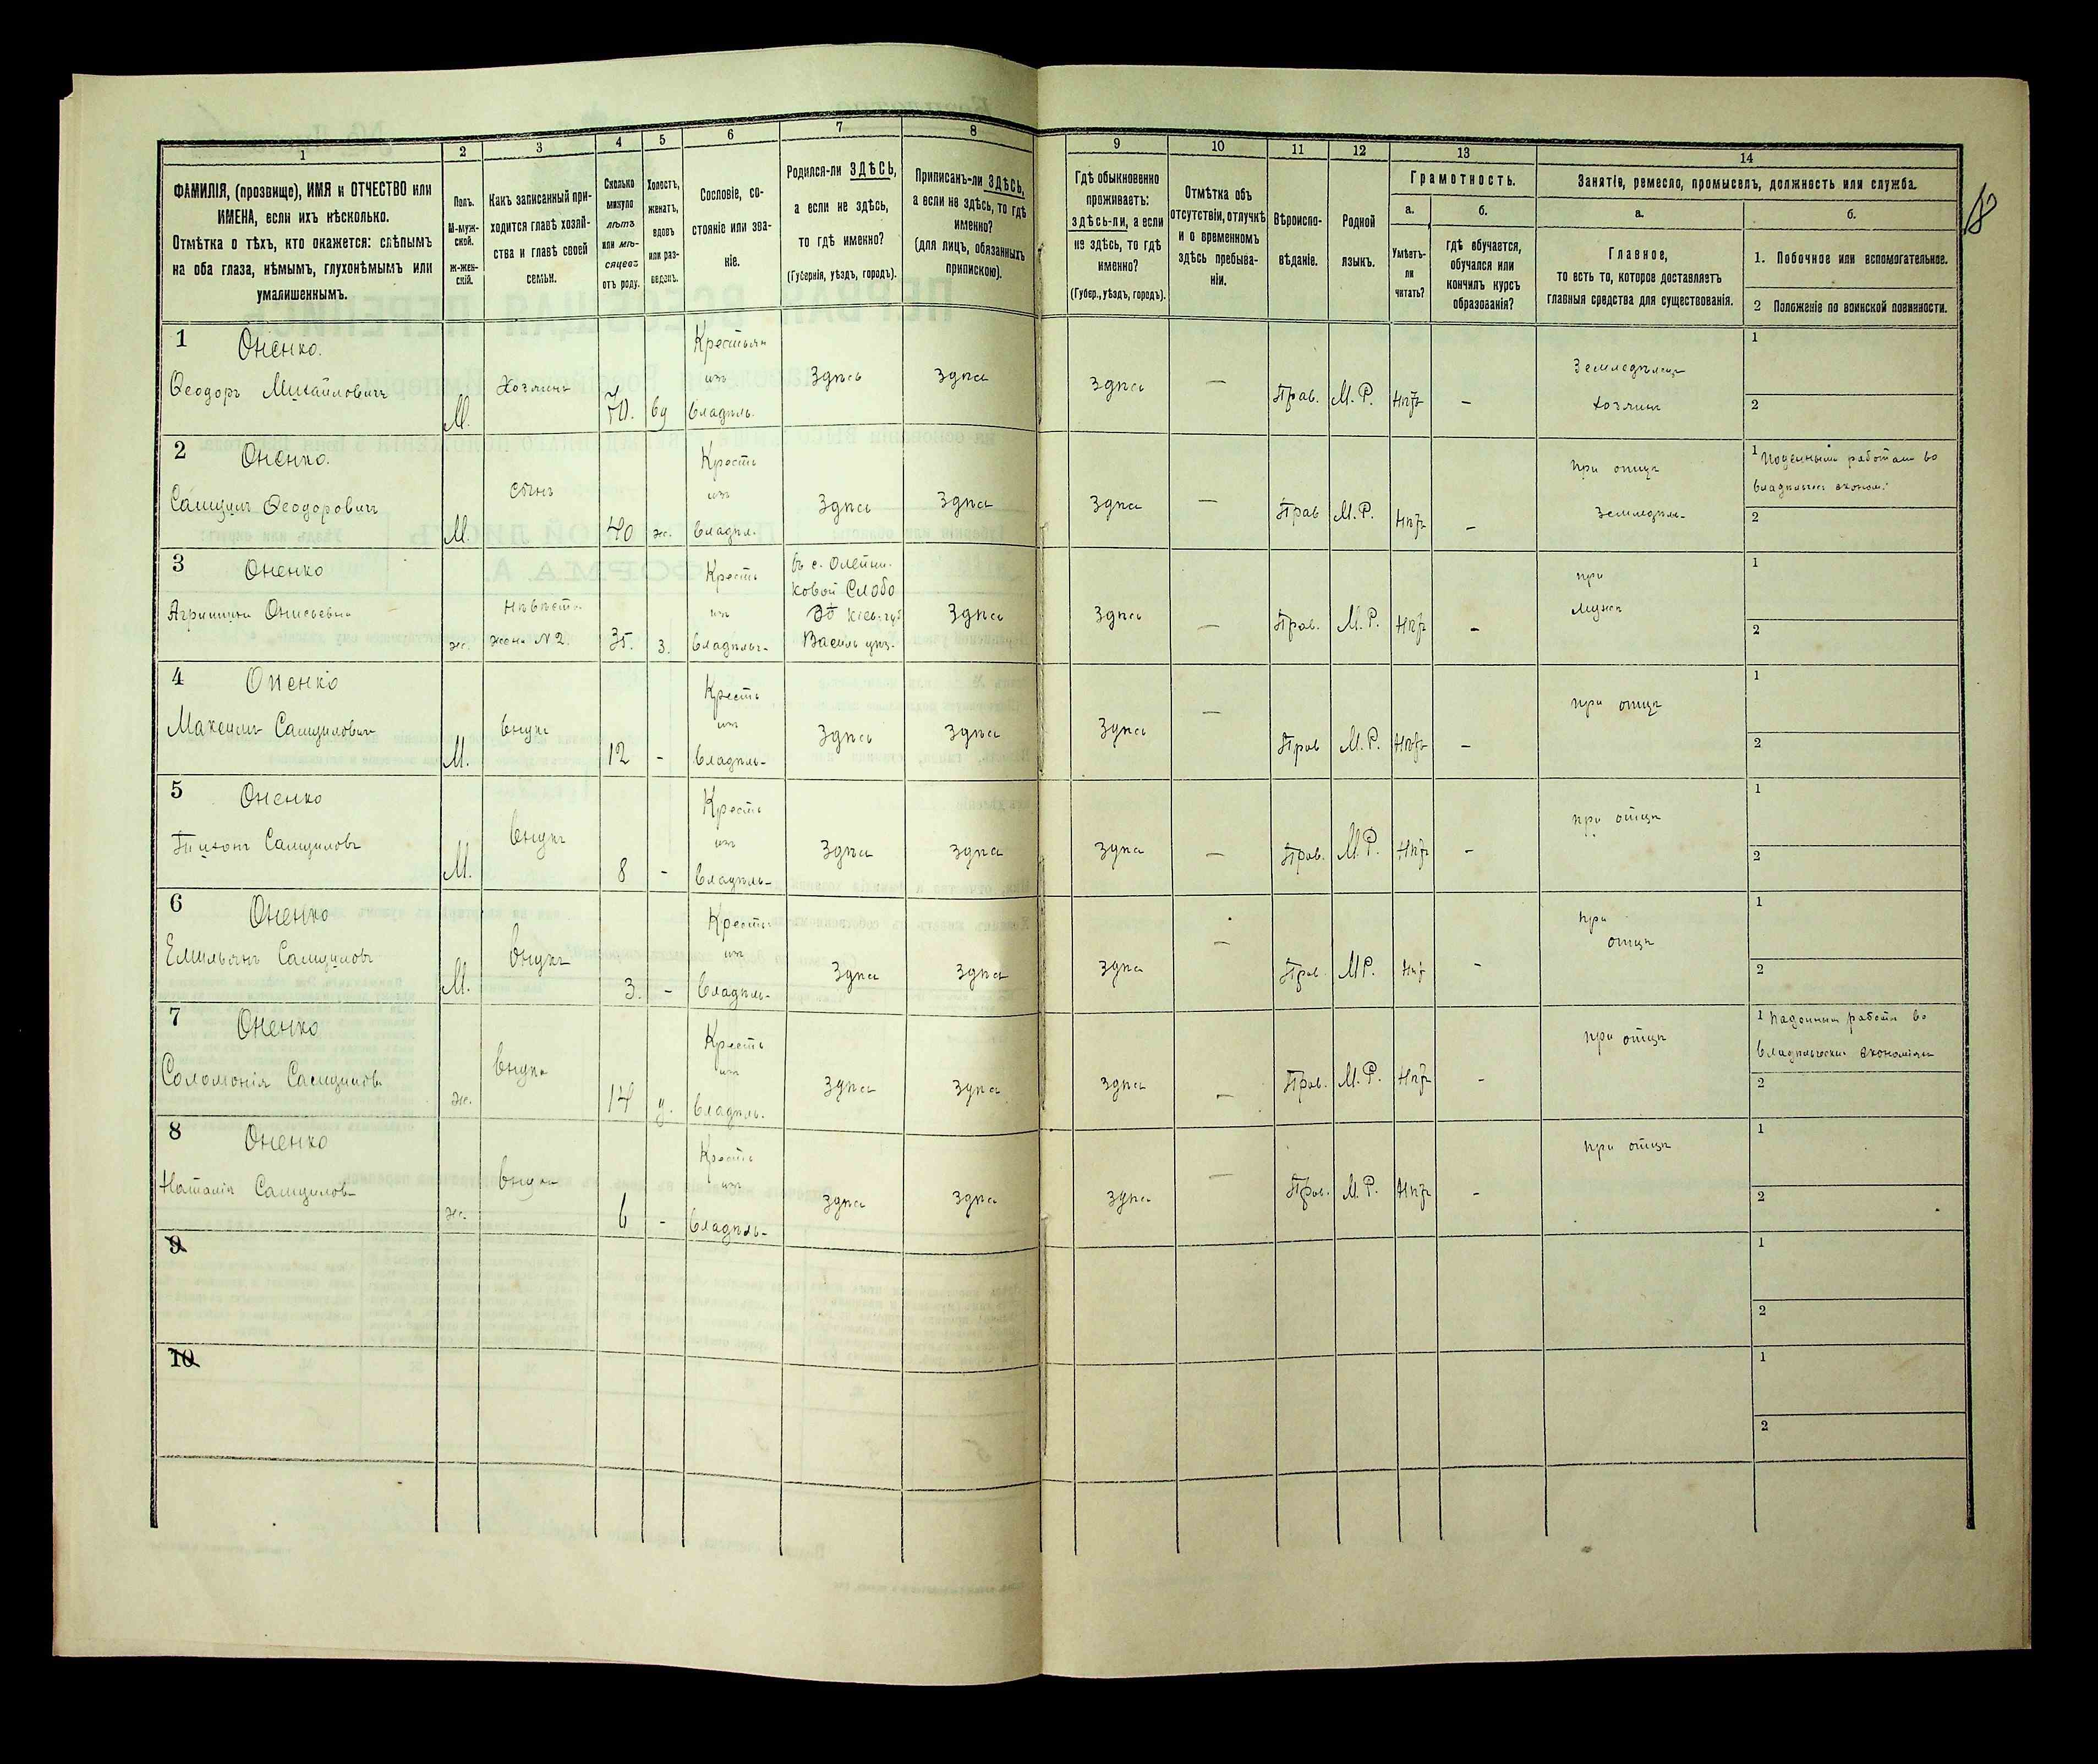 1
2
3
4
5
6
7
8
ФАМИЛІЯ, (прозвище), ИМЯ и ОТЧЕСТВО или
ИМЕНА, если ихъ нѣсколько.
Отмѣтка о тѣхъ, кто окажется: слѣпымъ
на оба глаза, нѣмымъ, глухонѣмымъ или
умалишеннымъ.
Полъ.
М-муж-
ской.
Ж-жен-
скій.
Какъ записанный при-
ходится главѣ хозяй-
ства и главѣ своей
семьи.
Сколько
минуло
лѣтъ
или мѣ-
сяцевъ
отъ роду.
Холостъ,
женатъ,
вдовъ
или раз-
веденъ.
Сословіе, со-
стояніе или зва-
ніе.
Родился-ли ЗДѢСЬ,
а если не здѣсь,
то гдѣ именно?
(Губернія, уѣздъ, городъ).
Приписанъ-ли ЗДѢСЬ,
а если не здѣсь, то гдѣ
именно?
(для лицъ, обязанныхъ
припискою).
9
10
11
12
13
14
Гдѣ обыкновенно
проживаетъ:
здѣсь-ли, а если
не здѣсь, то гдѣ
именно?
(Губер., уѣздъ, городъ).
Отмѣтка объ
отсутствіи, отлучкѣ
и о временномъ
здѣсь пребыва-
ніи.
Вѣроиспо-
вѣданіе.
Родной
языкъ.
Грамотность.
а.
б.
Умѣетъ-
ли
читать?
гдѣ обучается,
обучался или
кончилъ курсъ
образованія?
Занятіе, ремесло, промыселъ, должность или служба.
а.
б.
Главное,
то есть то, которое доставляетъ
главныя средства для существованія.
1. Побочное или вспомогательное.
2 Положеніе по воинской повинности.
18
1 Оненко.
Ѳеодоръ Михайловичъ
М.
Хозяинъ
70.
вд
Крестьян
изъ
владѣль.
Здѣсь
Здѣсь
Здѣсь
—
Прав.
М. Р.
Нѣтъ
—
Земледѣлецъ
хозяинъ
1
2
2 Оненко.
Самуилъ Ѳеодоровичъ
М.
сынъ
40
ж.
Кресть
изъ
владѣл.
Здѣсь
Здѣсь
Здѣсь
—
Прав
М. Р.
Нѣтъ
—
при отцѣ
земледѣл-
1 работам во
2
3 Оненко
Агрипина Онисьевна
ж.
Невѣстк
жена N 2.
35.
з.
Кресть
изъ
владѣльч-
въ с. Олейни-
ковой Слобо
дѣ Кіев. губ
Василь уѣз.
Здѣсь
Здѣсь
—
Прав.
М. Р.
Нѣтъ
-
при
мужѣ
1
2
4 Оненко
Максимъ Самуилович
М.
внукъ
12
-
Кресть
изъ
владѣль-
Здѣсь
Здѣсь
Здѣсь
—
Прав
М. Р.
Нѣтъ
—
при отцѣ
1
2
5 Оненко
Тихонъ Самуиловъ
М.
внукъ
8
-
Кресть
изъ
владѣль-
Здѣсь
здѣсь
здѣсь
—
Прав.
М. Р.
Нѣтъ
—
при отцѣ
1
2
6 Оненко
Емильянъ Самуиловъ
М.
внукъ
3.
-
Кресть
изъ
владѣль-
Здѣсь
здѣсь
здѣсь
—
Прав.
М Р.
Нѣт
-
при
отцѣ
1
2
7 Оненко
Соломонія Самуилов
ж.
внука
14
Кресть
изъ
владѣль.
здѣсь
здѣсь
здѣсь
—
Прав.
М. Р.
Нѣтъ
-
при отцѣ
1 работы во
экономіях
2
8 Оненко
Наталія Самуилов
ж.
внука
6
-
Кресть
изъ
владѣль-
здѣсь
здѣсь
здѣсь
—
Прав.
М. Р.
Нѣтъ
-
при отцѣ
1
2
9
1
2
10
1
2